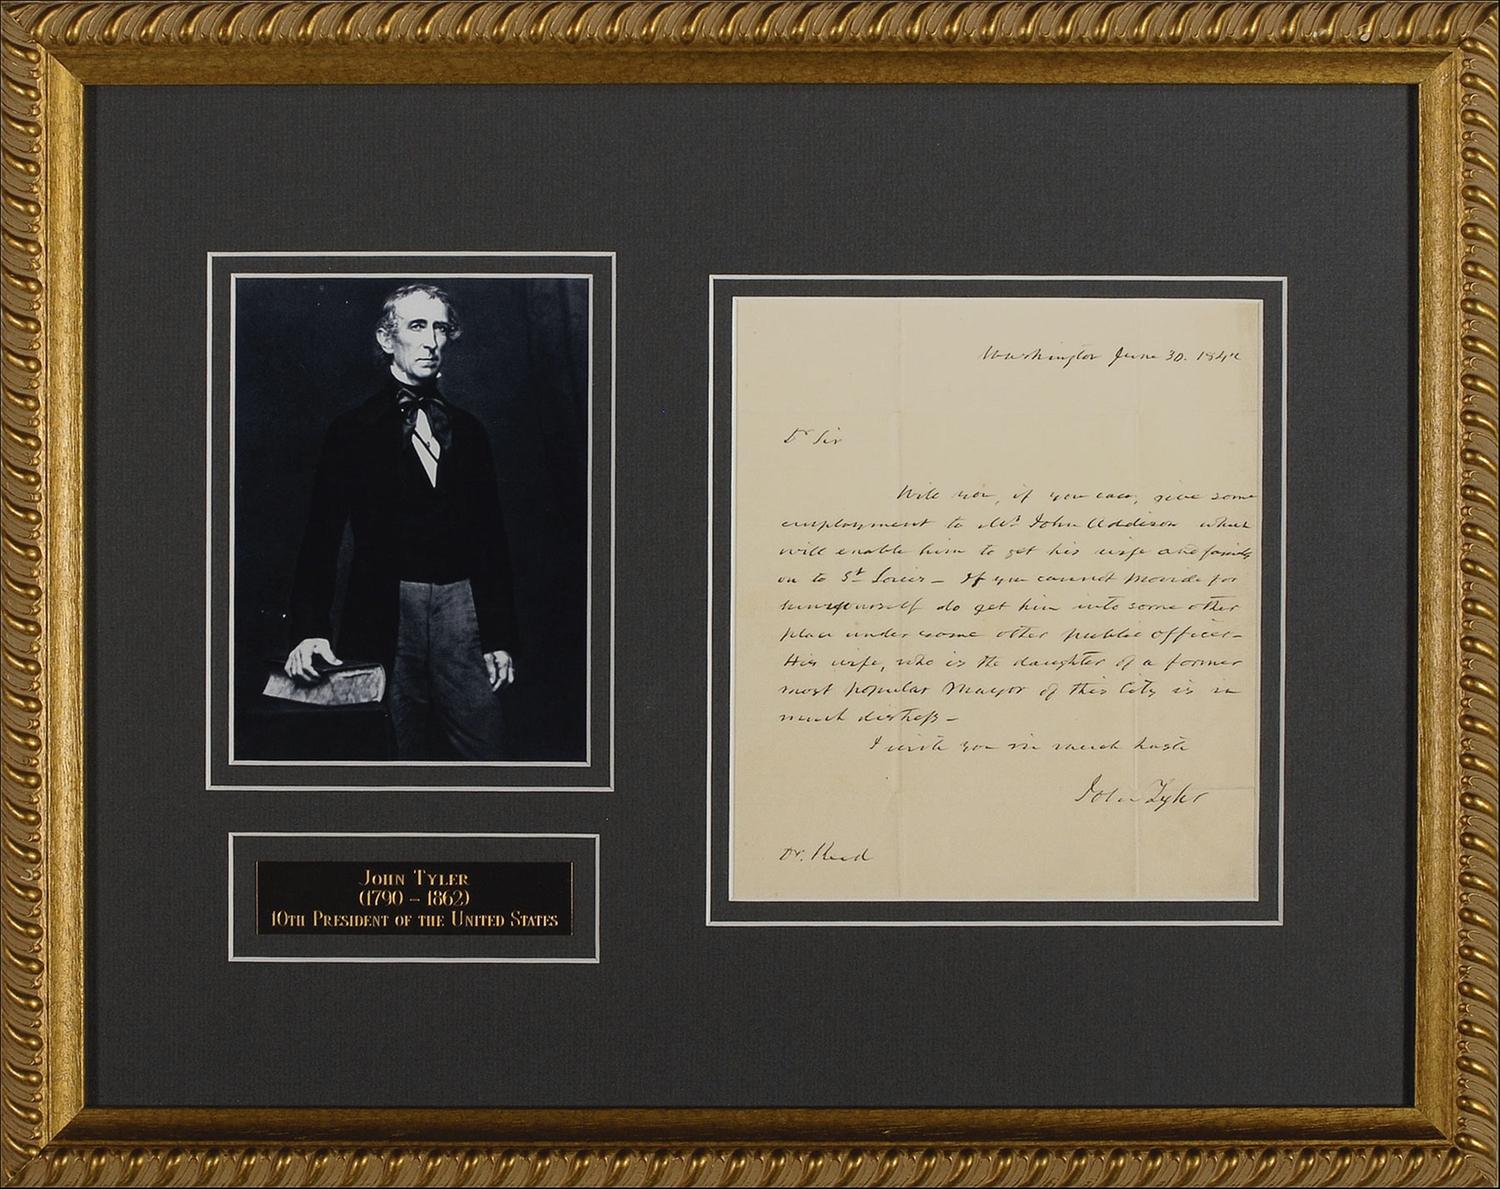 Washington June 30. 184
Dr Sir
Will you, if you can, give some
employment to Mr. John Addison which
will enable him to get his wife and family
on to St Louis – If you cannot provide for
him yourself do get him into some other
place under some other public officer –
His wife, who is the daughter of a former
most popular Mayor of this City is in
much distress –
I write you in much haste
John Tyler
Dr. Reed
JOHN TYLER
(1790 – 1862)
10TH PRESIDENT OF THE UNITED STATES